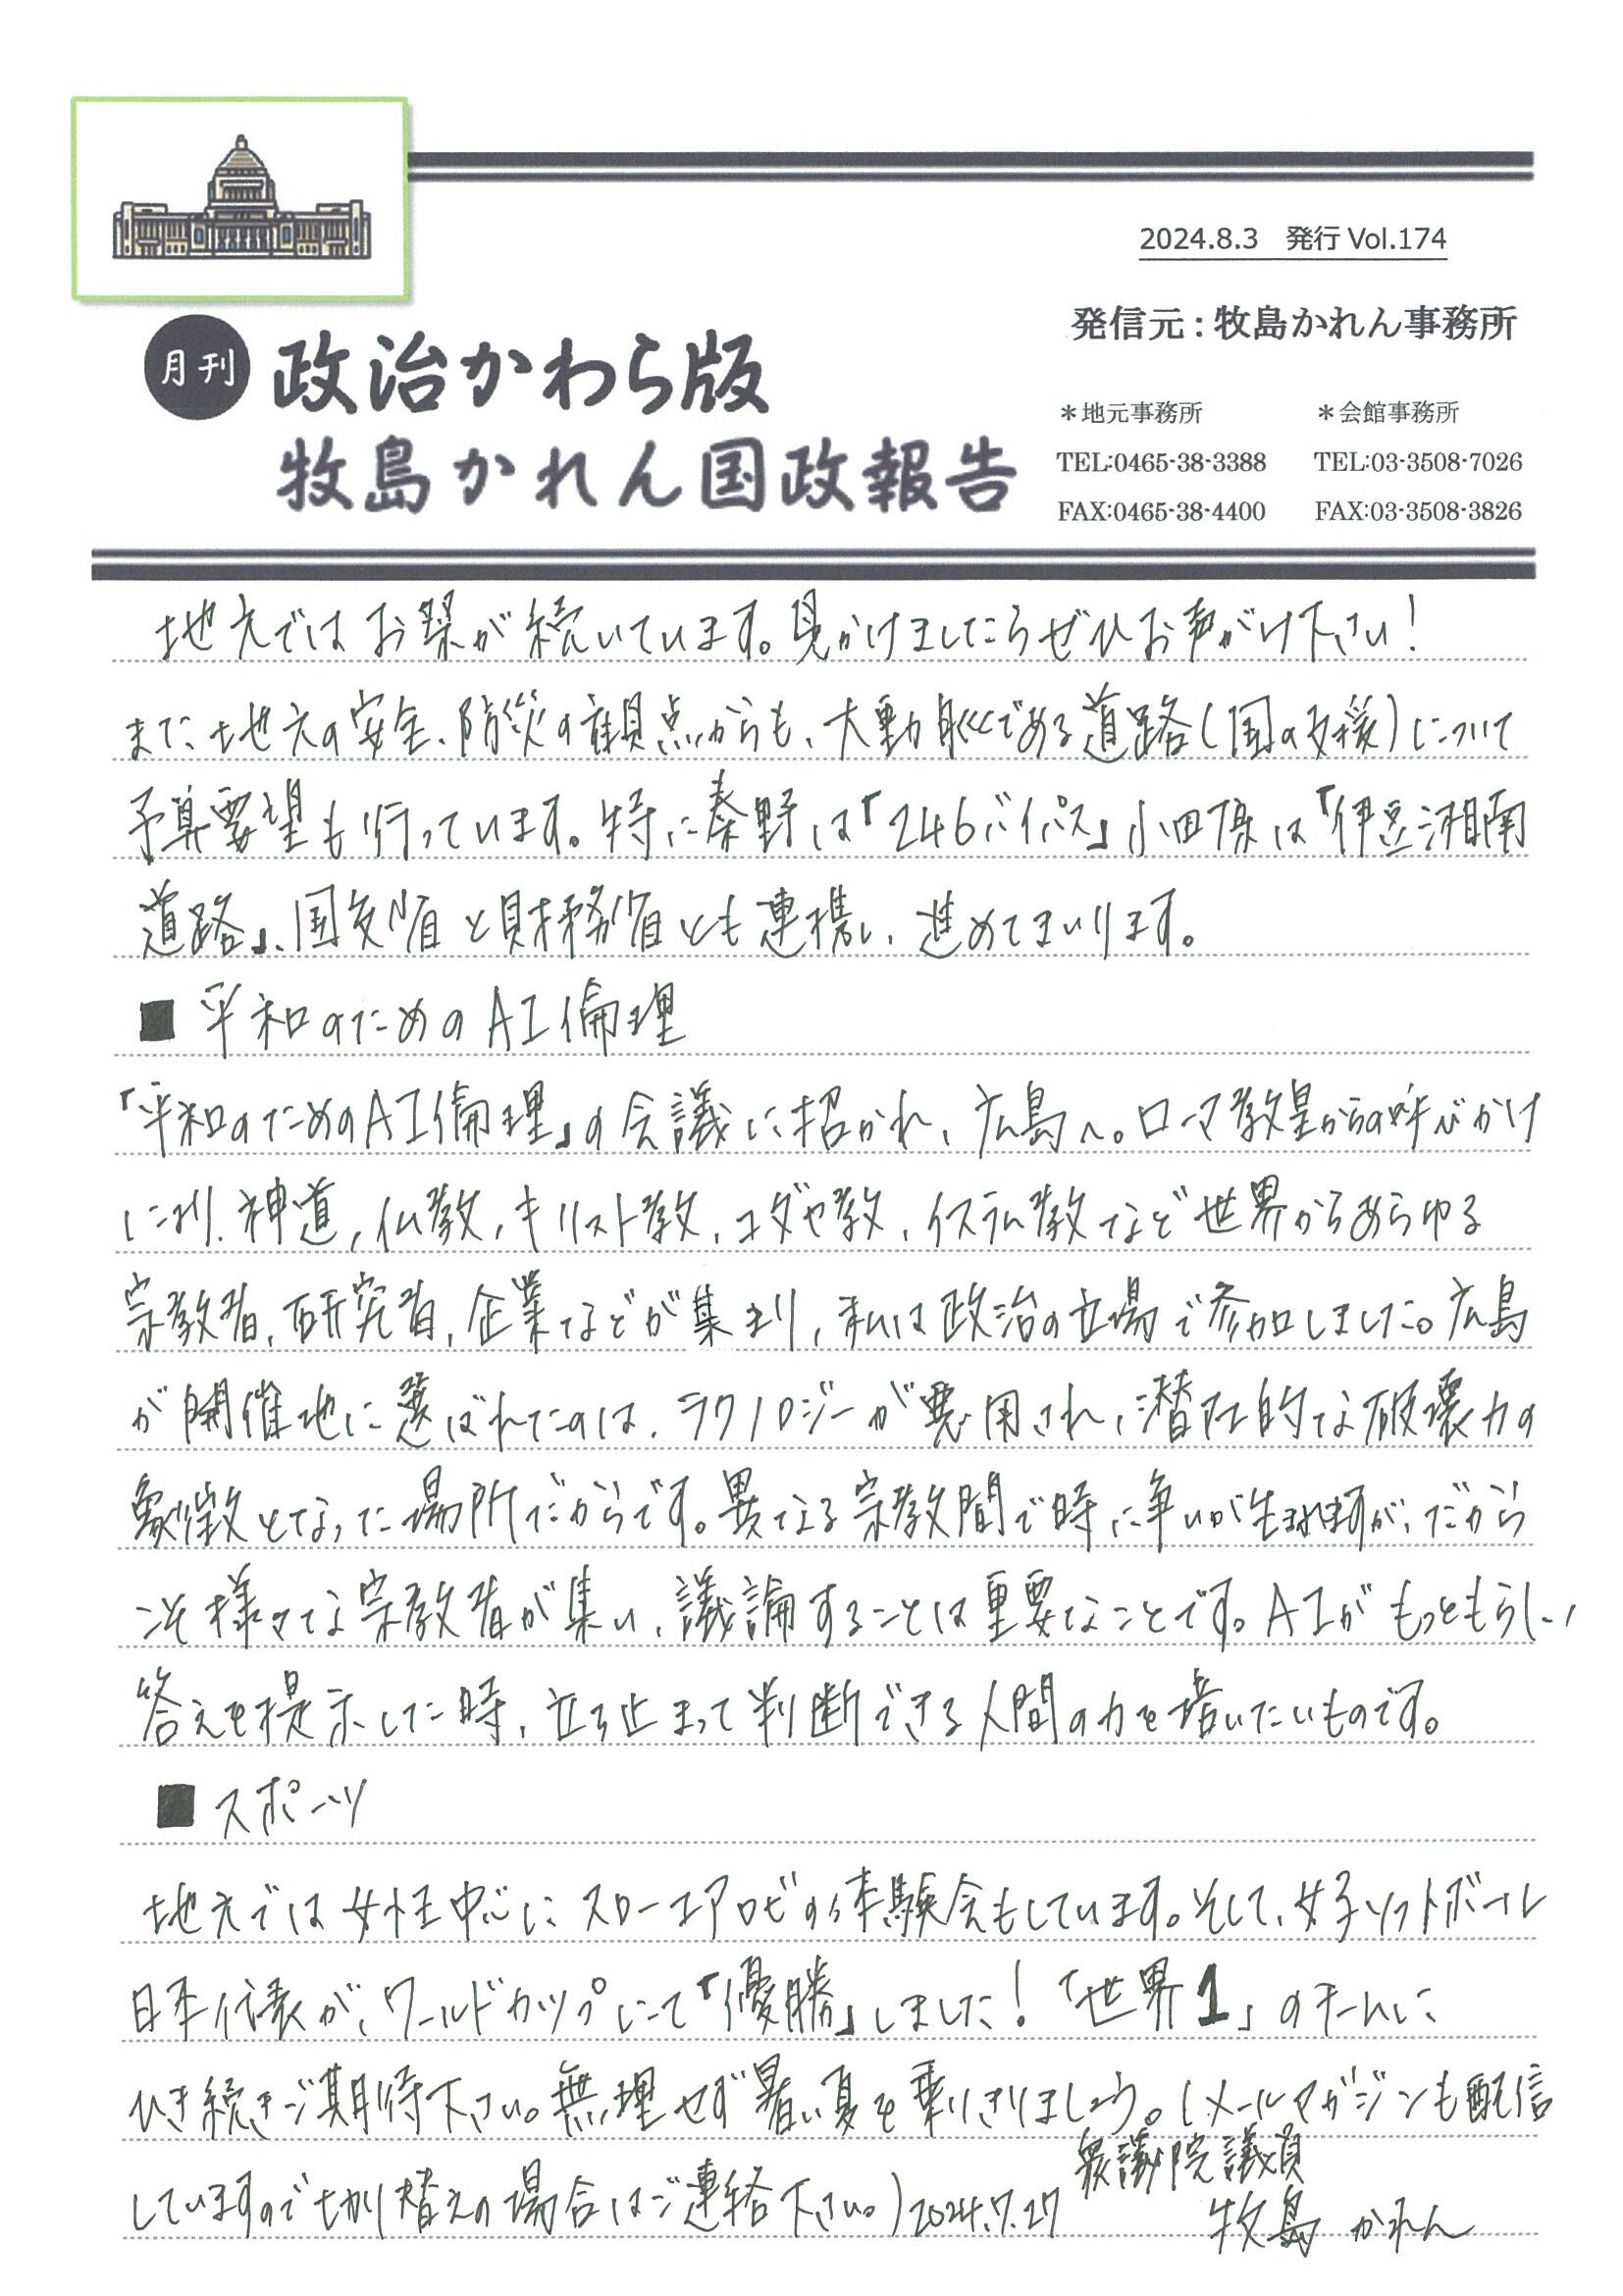 2024.8.3 発行 Vol.174
発信元:牧島かれん事務所
月刊 政治かわら版
牧島かれん国政報告
＊地元事務所 ＊会館事務所
TEL:0465-38-3388 TEL:03-3508-7026
FAX:0465-38-4400 FAX:03-3508-3826
地元ではお祭が続いています。見かけましたらぜひお声がけ下さい！
また、地元の安全、防災の観点からも、大動脈である道路(国の支援)について
予算要望も行っています。特に秦野は「246バイパス」小田原は「伊豆湘南
道路」、国交省と財務省とも連携し、進めてまいります。
■ 平和のためのAI倫理
「平和のためのAI倫理」の会議に招かれ、広島へ。ローマ教皇からの呼びかけ
により、神道、仏教、キリスト教、ユダヤ教、イスラム教など世界からあらゆる
宗教者、研究者、企業などが集まり、私は政治の立場で参加しました。広島
が開催地に選ばれたのは、テクノロジーが悪用され、潜在的な破壊力の
象徴となった場所だからです。異なる宗教間で時に争いが生まれますが、だから
こそ様々な宗教者が集い、議論することは重要なことです。AIがもっともらしい
答えを提示した時、立ち止まって判断できる人間の力を培いたいものです。
■ スポーツ
地元では女性中心にスローエアロビの体験会もしています。そして、女子ソフトボール
日本代表が、ワールドカップにて「優勝」しました！「世界1」のチームに
ひき続きご期待下さい。無理せず暑い夏を乗りきりましょう。(メールマガジンも配信
していますので切り替えの場合はご連絡下さい。)2024.7.27
衆議院議員
牧島 かれん